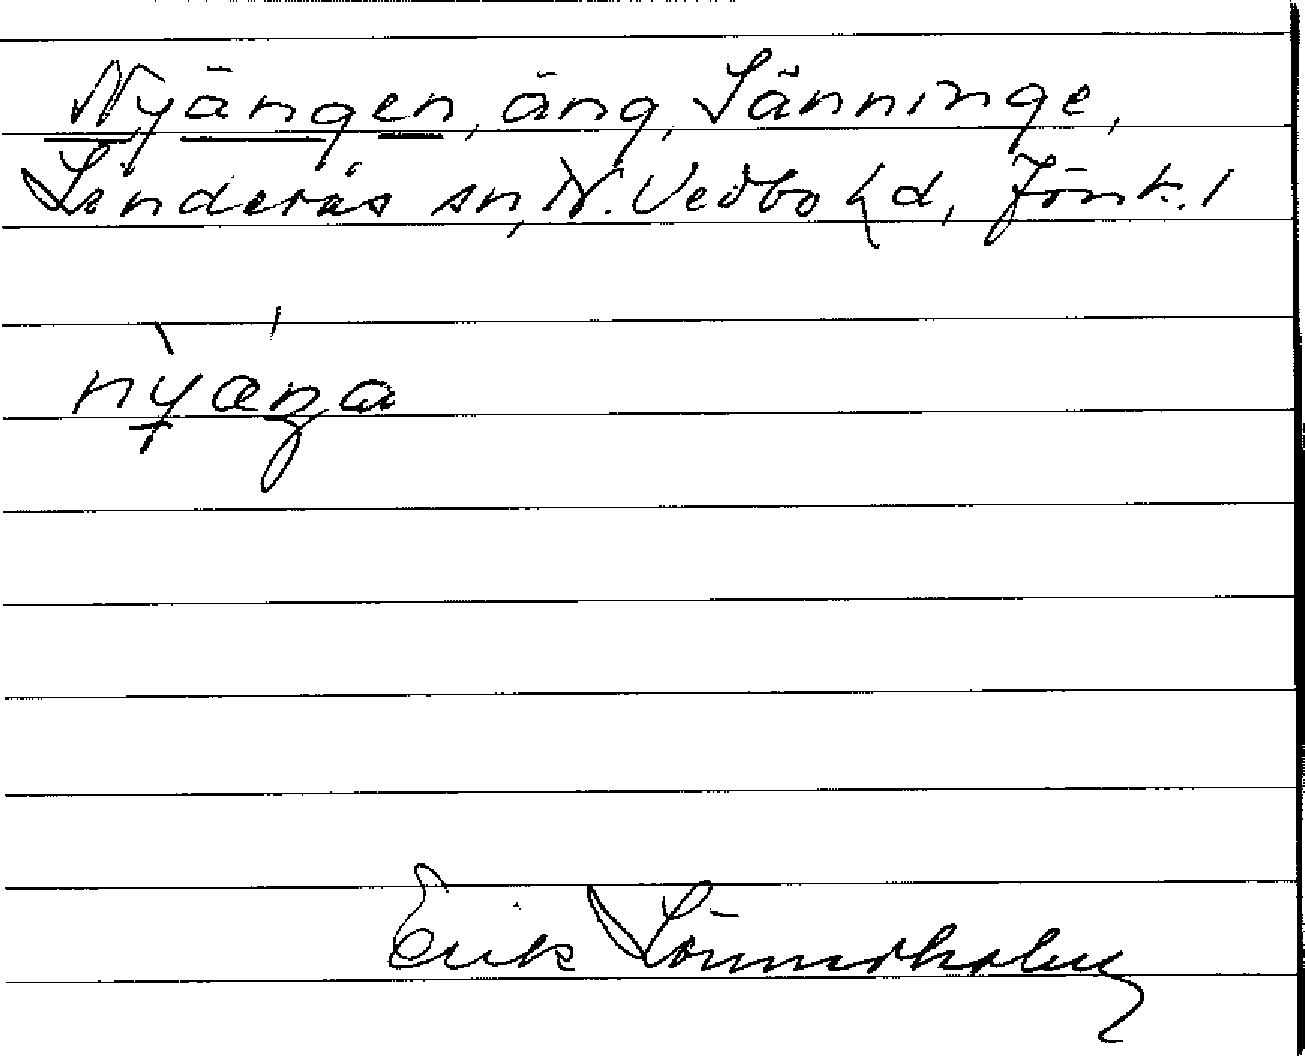 Nyängen, äng, Sänninge,
Linderås sn, N. Vedbo hd, Jönk. l
nỳǡŋa
Erik Lönnerholm